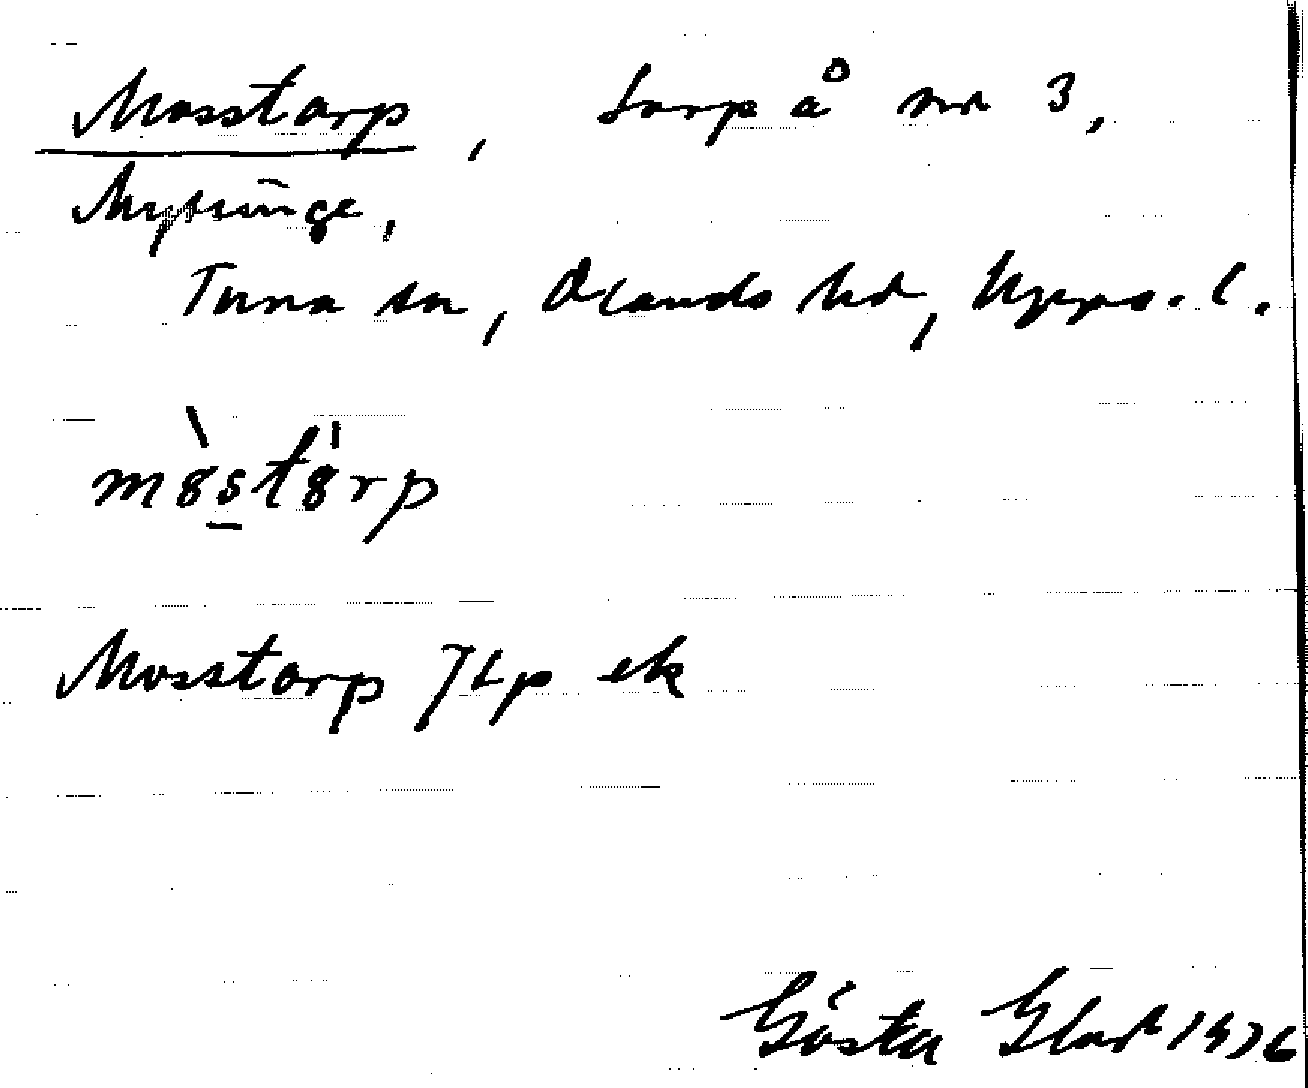 Mosstorp, torp å nr 3,
Mysinge,
Tuna sn, Olands hd, Upps. l.
mòstȯrp
Mosstorp JLp ek
Gösta Glad 1976